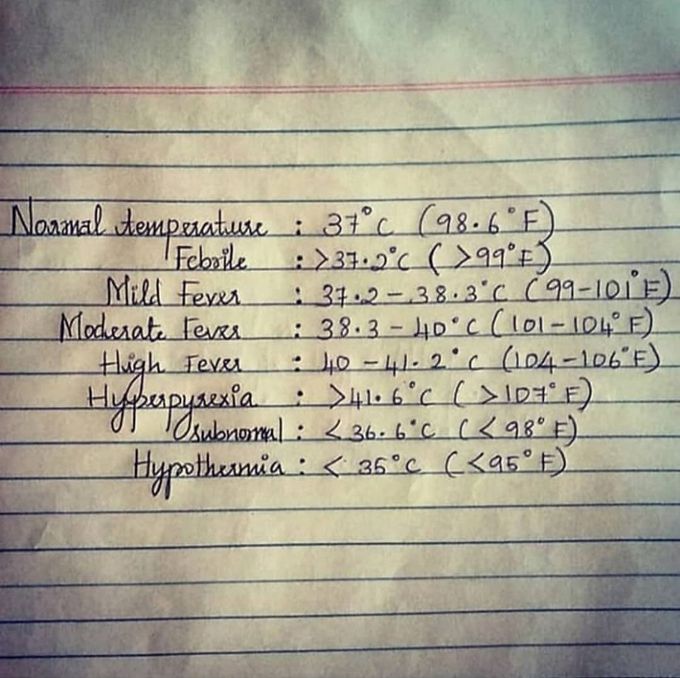 Normal temperature : 37°C (98.6°F)
Febrile : >37.2°C (>99°F)
Mild Fever : 37.2 – 38.3°C (99–101°F)
Moderate Fever : 38.3 – 40°C (101–104°F)
High Fever : 40 – 41.2°C (104–106°F)
Hyperpyrexia : >41.6°C (>107°F)
subnomal : <36.6°C (<98°F)
Hypothermia : < 35°C (<95°F)